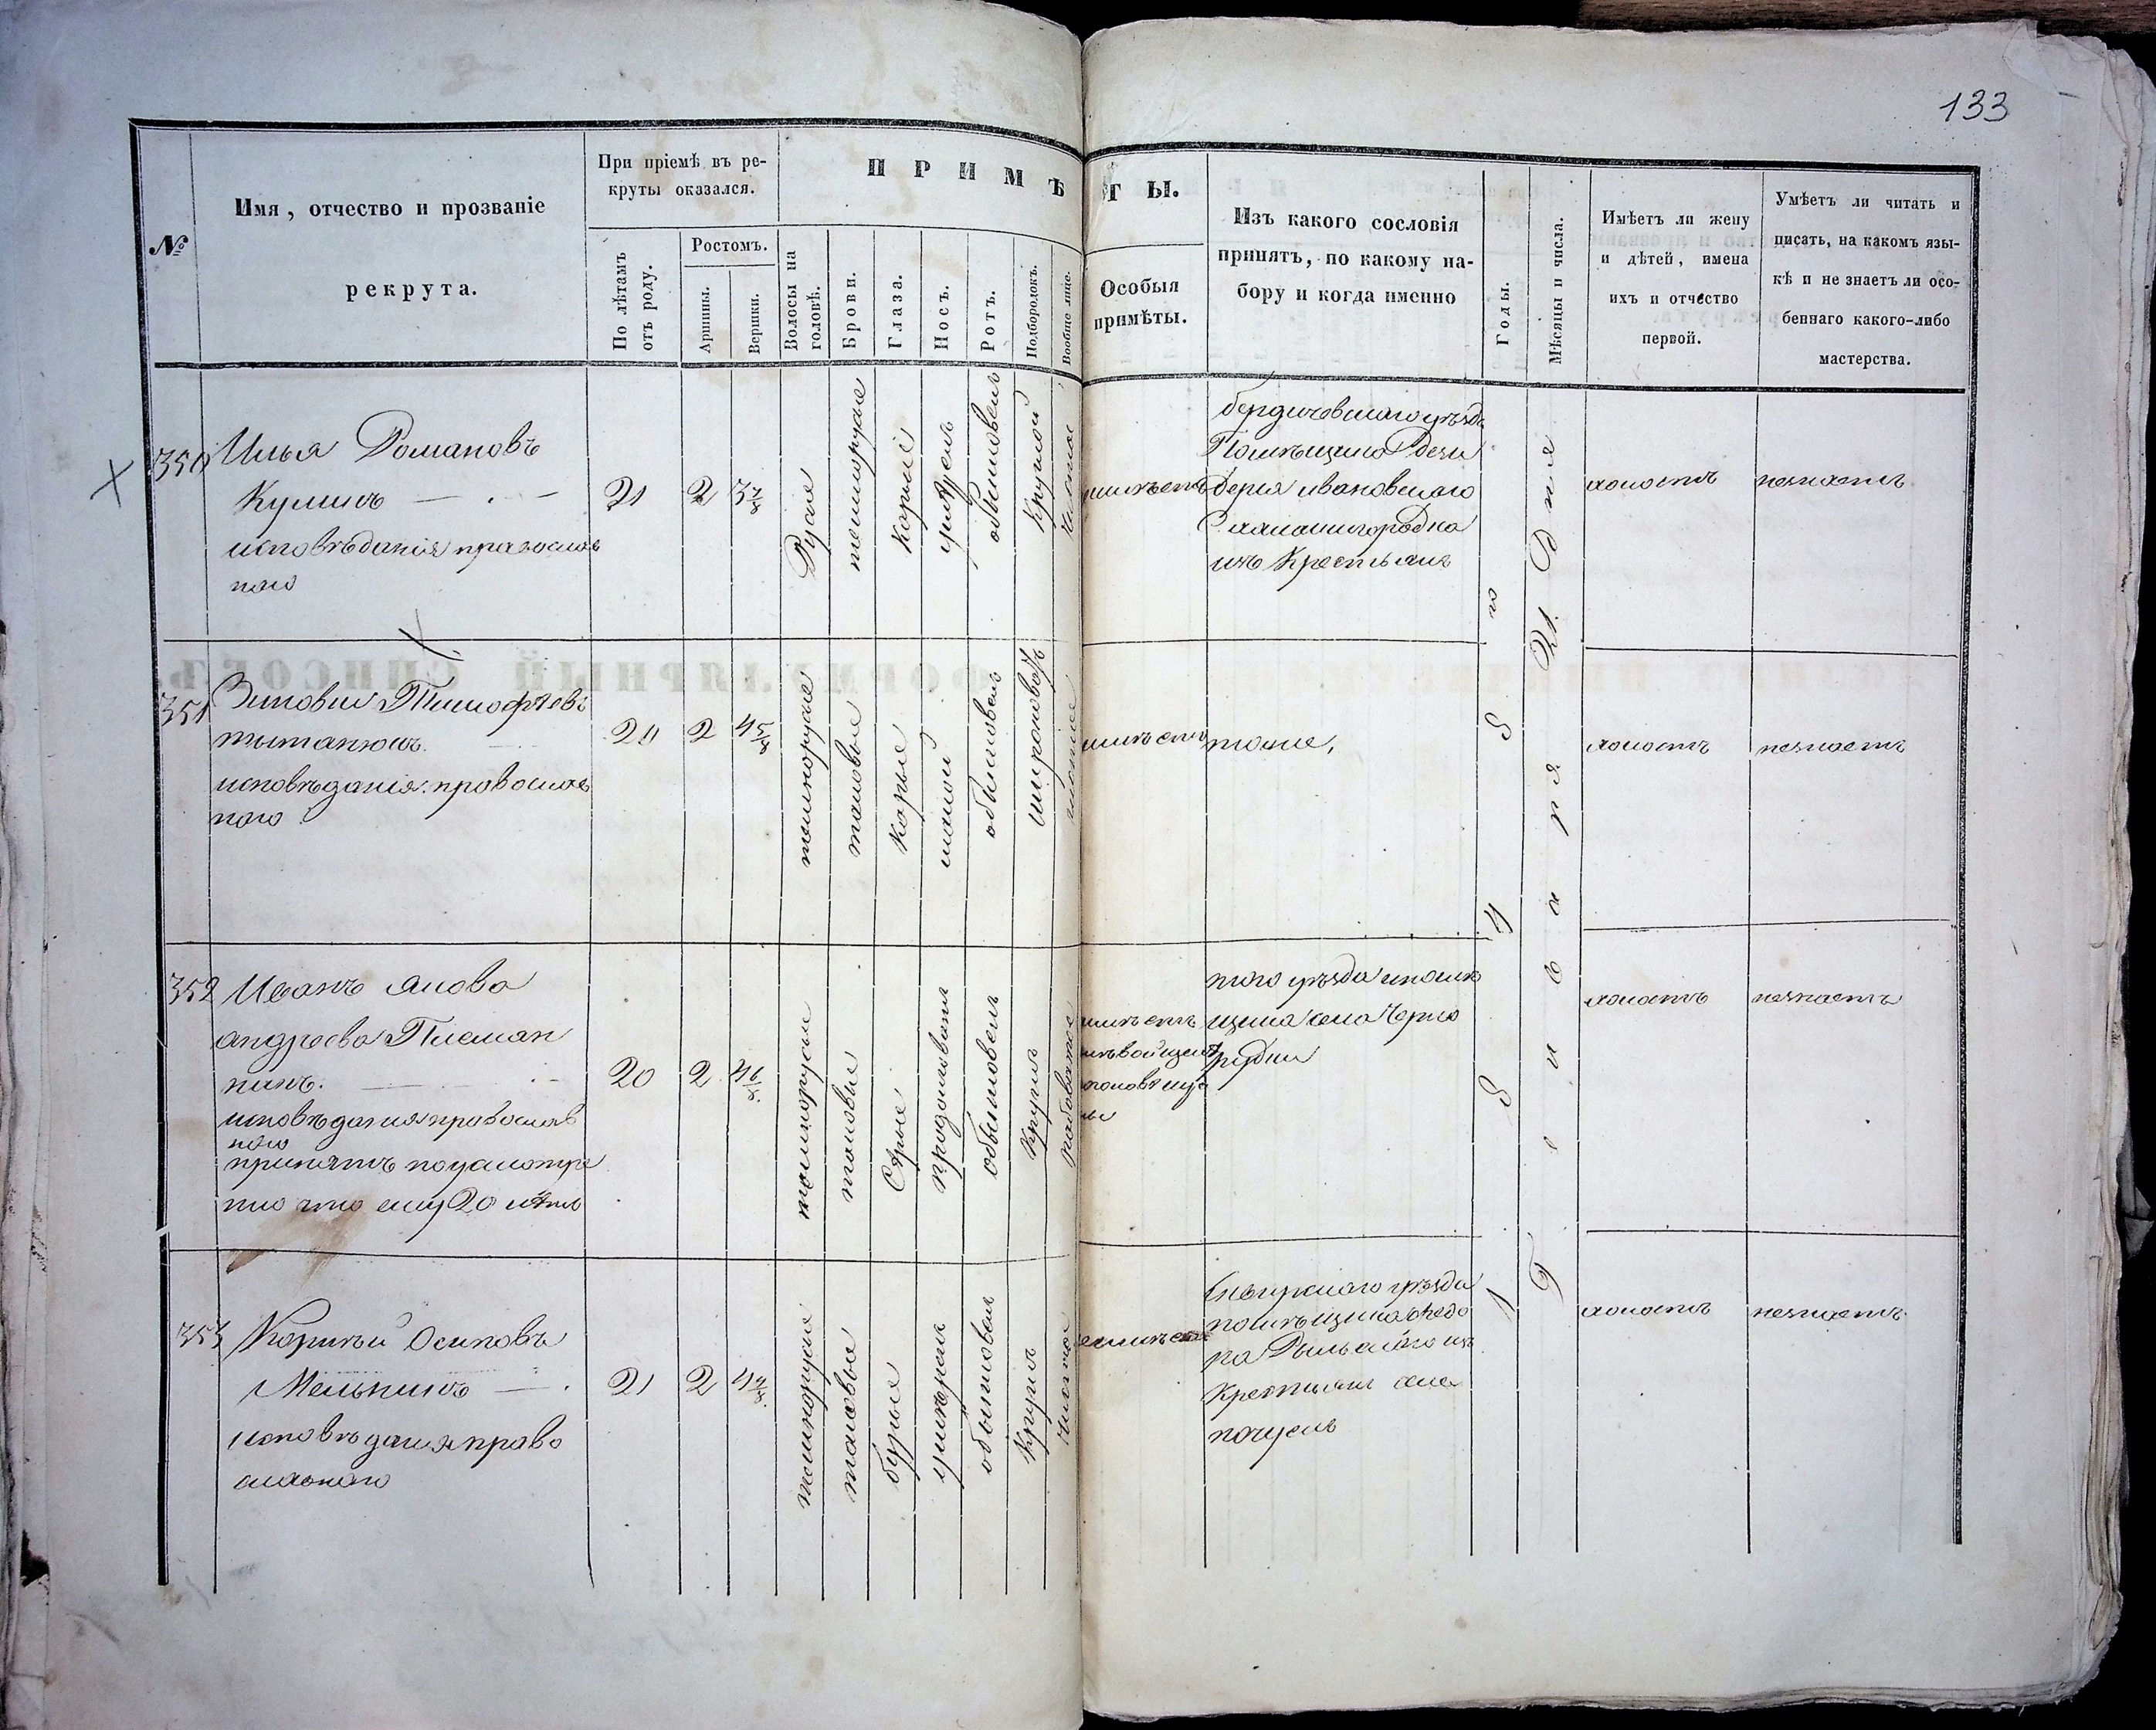 133
№
Имя, отчество и прозваніе
рекрута.
При пріемѣ въ ре-
круты оказался.
По лѣтамъ
отъ роду.
Ростомъ.
Аршины.
Вершки.
ПРИМѢТЫ.
Волосы на
головѣ.
Брови.
Глаза.
Носъ.
Ротъ.
Подбородокъ.
Вообще лице.
Особыя
примѣты.
Изъ какого сословія
принятъ, по какому на-
бору и когда именно
Годы.
Мѣсяцы и числа.
Имѣетъ ли жену
и дѣтей, имена
ихъ и отчество
первой.
Умѣетъ ли читать и
писать, на какомъ язы-
кѣ и не знаетъ ли осо-
беннаго какого-либо
мастерства.
350
Илья Романовъ
Куликъ
исповѣданія православ
наго
21
2
3 7/8
Русые
темнорусые
Карые
обыкновен
Круглой
Чистое
бердичевскаго уѣзда
Ивановскаго
изъ Крестьянъ
холостъ
незнаетъ
351
Зиновий Тимофѣевъ
исповѣданія православ
наго
2
4 5/8
темнорусые
таковые
Карые
малой
обыкновен
чистое
тоже,
холостъ
незнаетъ
352
Иванъ Якова
андреева Писман
никъ.
исповѣдания православ
наго
принятъ поусмотре
нию что ему 20 лѣтъ
20
2
4 6/8
темнорусые
таковые
Серые
продолговатъ
обыкновен
Круглъ
рабоватое
того уѣзда помѣ
щика села Черно
рудки
холостъ
незнаетъ
353
Корнѣй Осиповъ
Мельникъ
исповѣдания право
славнаго
21
2
темнорусые
таковые
бурые
умѣрен
обыкновен
Круглъ
Чистое
Сквирскаго уѣзда
помѣщика Ѳедо
ра Рыльскаго изъ
крестьянъ села
почуекъ
холостъ
незнаетъ
1848 го
Генваря 21 Дня